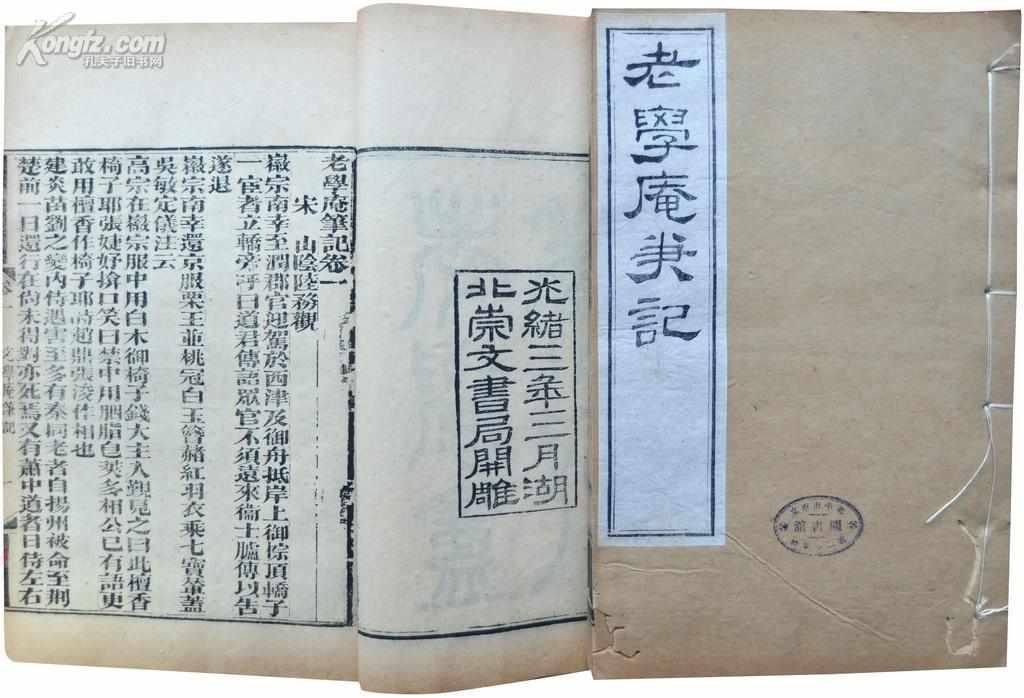 Kongfz.com
孔夫子旧书网
老學庵筆記
圖書館
光緒三年三月湖
北崇文書局開雕
老學庵筆記卷一
宋 山陰陸務觀
徽宗南幸至潤郡官迎駕於西津及御舟抵岸上御椶頂轎子
一宦者立轎旁呼曰道君傳語眾官不須遠來衞士臚傳以告
遂退
徽宗南幸還京服栗玉並桃冠白玉簪赭紅羽衣乘七寶輦蓋
吳敏定儀注云
高宗在徽宗服中用白木御椅子錢大主入覲見之曰此檀香
椅子耶張婕妤掩口笑曰禁中用胭脂皂莢多相公已有語更
敢用檀香作椅子耶時趙鼎張浚作相也
建炎苗劉之變內侍遇害至多有秦同老者自揚州被命至荊
楚前一日還行在尚未得對亦死焉又有蕭中道者日侍左右